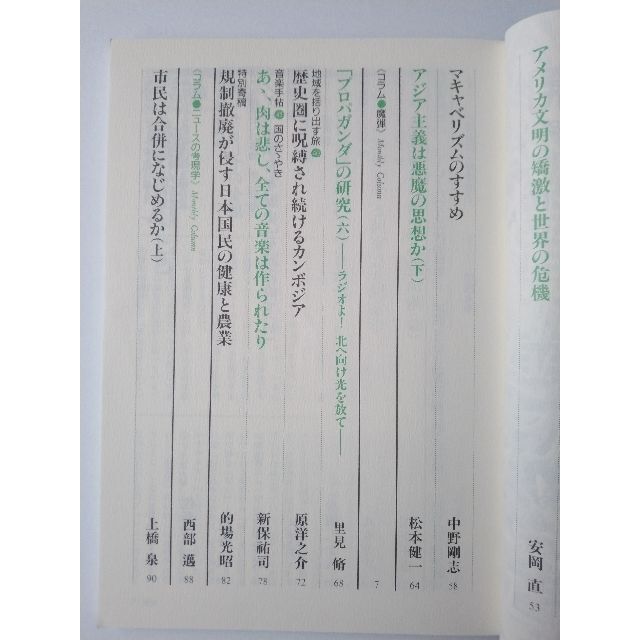 アメリカ文明の矯激と世界の危機
安岡 直
53
マキャベリズムのすすめ
中野剛志
58
アジア主義は悪魔の思想か(下)
松本健一
64
〈コラム●魔弾〉 Monthly Column
7
「プロパガンダ」の研究(六)――ラジオよ! 北へ向け光を放て――
里見 脩
68
地域を揺り出す旅
歴史圏に呪縛され続けるカンボジア
原洋之介
72
音楽手帖 国のさゝやき
あゝ、肉は悲し、全ての音楽は作られたり
新保祐司
78
特別寄稿
規制撤廃が侵す日本国民の健康と農業
的場光昭
82
〈コラム●ニュースの考現学〉 Monthly Column
西部 邁
88
市民は合併になじめるか(上)
上橋 泉
90